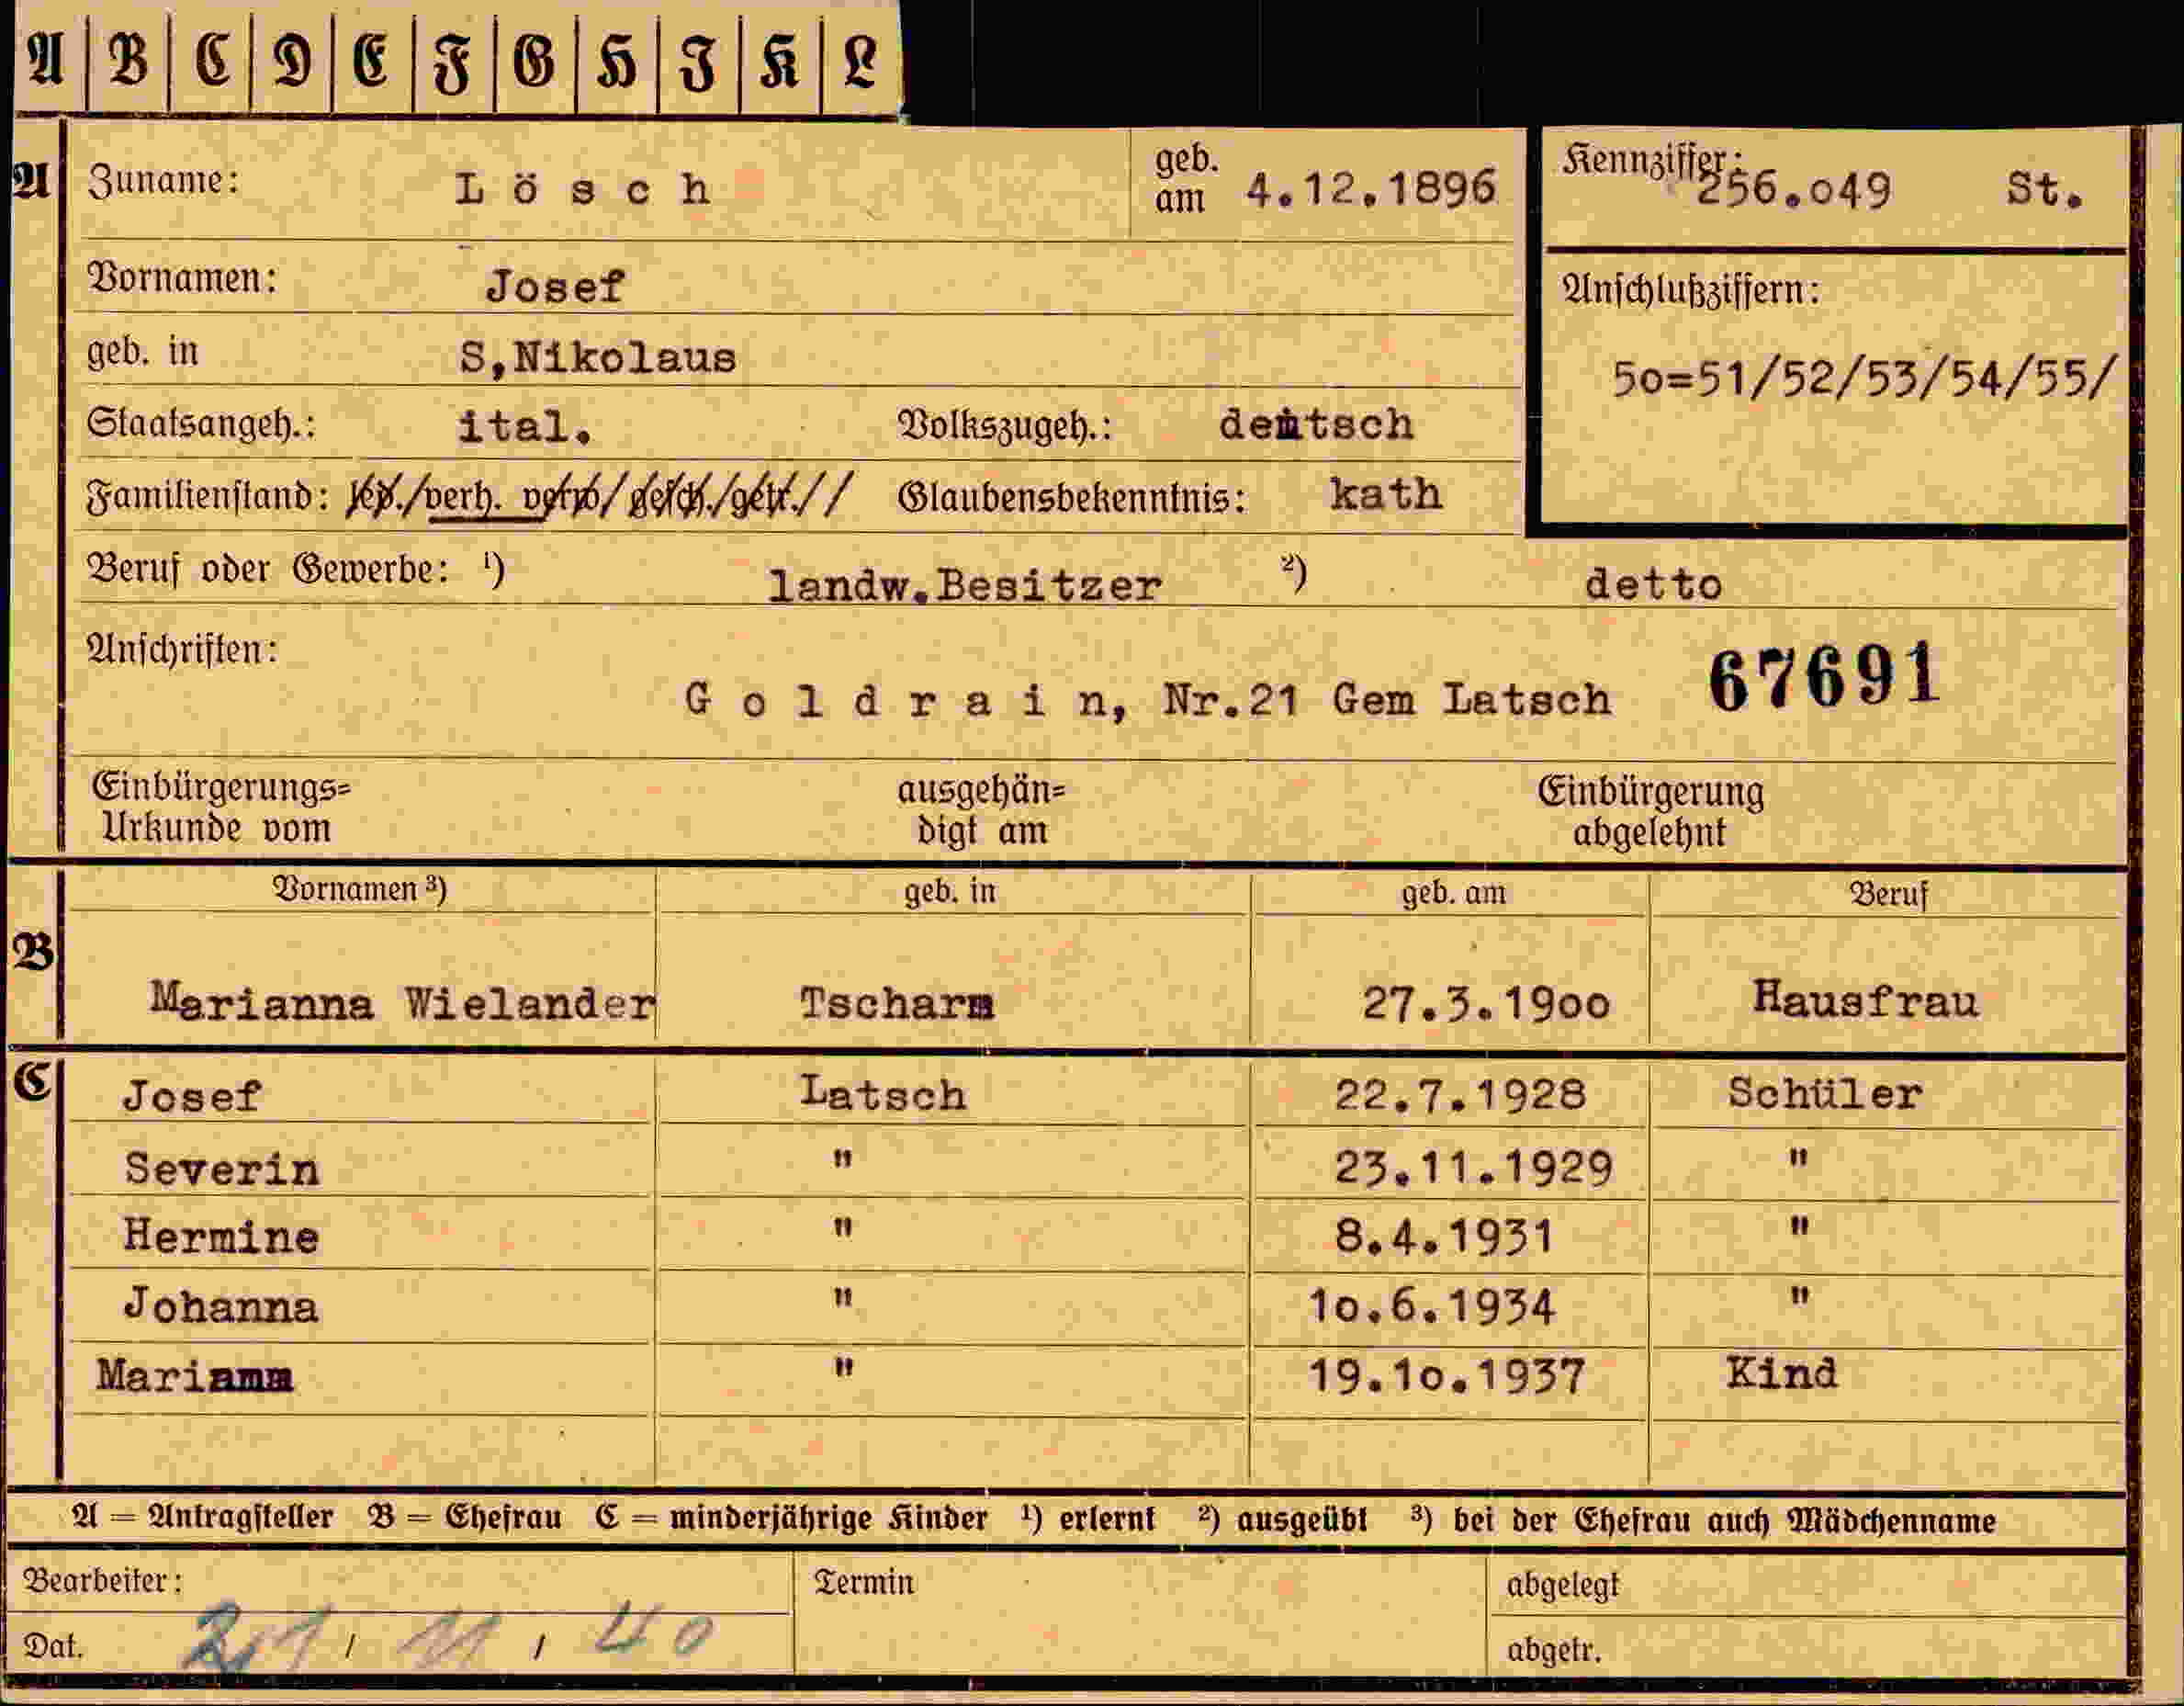 A B C D E F G H I K L
A Zuname: Lösch geb. am 4.12.1896 Kennziffer: 256.o49 St.
Vornamen: Josef
Anschlußziffern:
geb. in S,Nikolaus
5o=51/52/53/54/55/
Staatsangeh.: ital. Volkszugeh.: deutsch
Familienstand: led./verh. verw/gesch./getr.// Glaubensbekenntnis: kath
Beruf oder Gewerbe: ¹) landw.Besitzer ²) detto
Anschriften:
Goldrain, Nr.21 Gem Latsch 67691
Einbürgerungs= ausgehän= Einbürgerung
Urkunde vom digt am abgelehnt
Vornamen ³) geb. in geb. am Beruf
B
Marianna Wielander Tschars 27.3.19oo Hausfrau
C Josef Latsch 22.7.1928 Schüler
Severin " 23.11.1929 "
Hermine " 8.4.1931 "
Johanna " 1o.6.1934 "
" 19.1o.1937 Kind
A = Antragsteller B = Ehefrau C = minderjährige Kinder ¹) erlernt ²) ausgeübt ³) bei der Ehefrau auch Mädchenname
Bearbeiter: Termin abgelegt
Dat. / 11 / 40 abgetr.